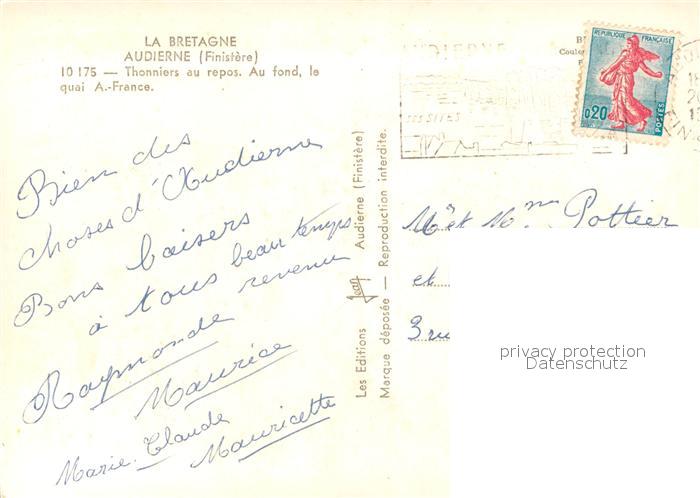 LA BRETAGNE
AUDIERNE (Finistère)
10 175 — Thonniers au repos. Au fond, le
quai A.-France.
Bien des
choses d'Audierne
Bons baisers
à tous beau temps
revenu
Raymonde
Maurice
Marie-Claude
Mauricette
Les Editions Jean Audierne (Finistère)
Marque déposée — Reproduction interdite.
AUDIERNE
REPUBLIQUE FRANÇAISE
0,20
POSTES
Mr et Mme Pottier
et
3 ru
privacy protection
Datenschutz